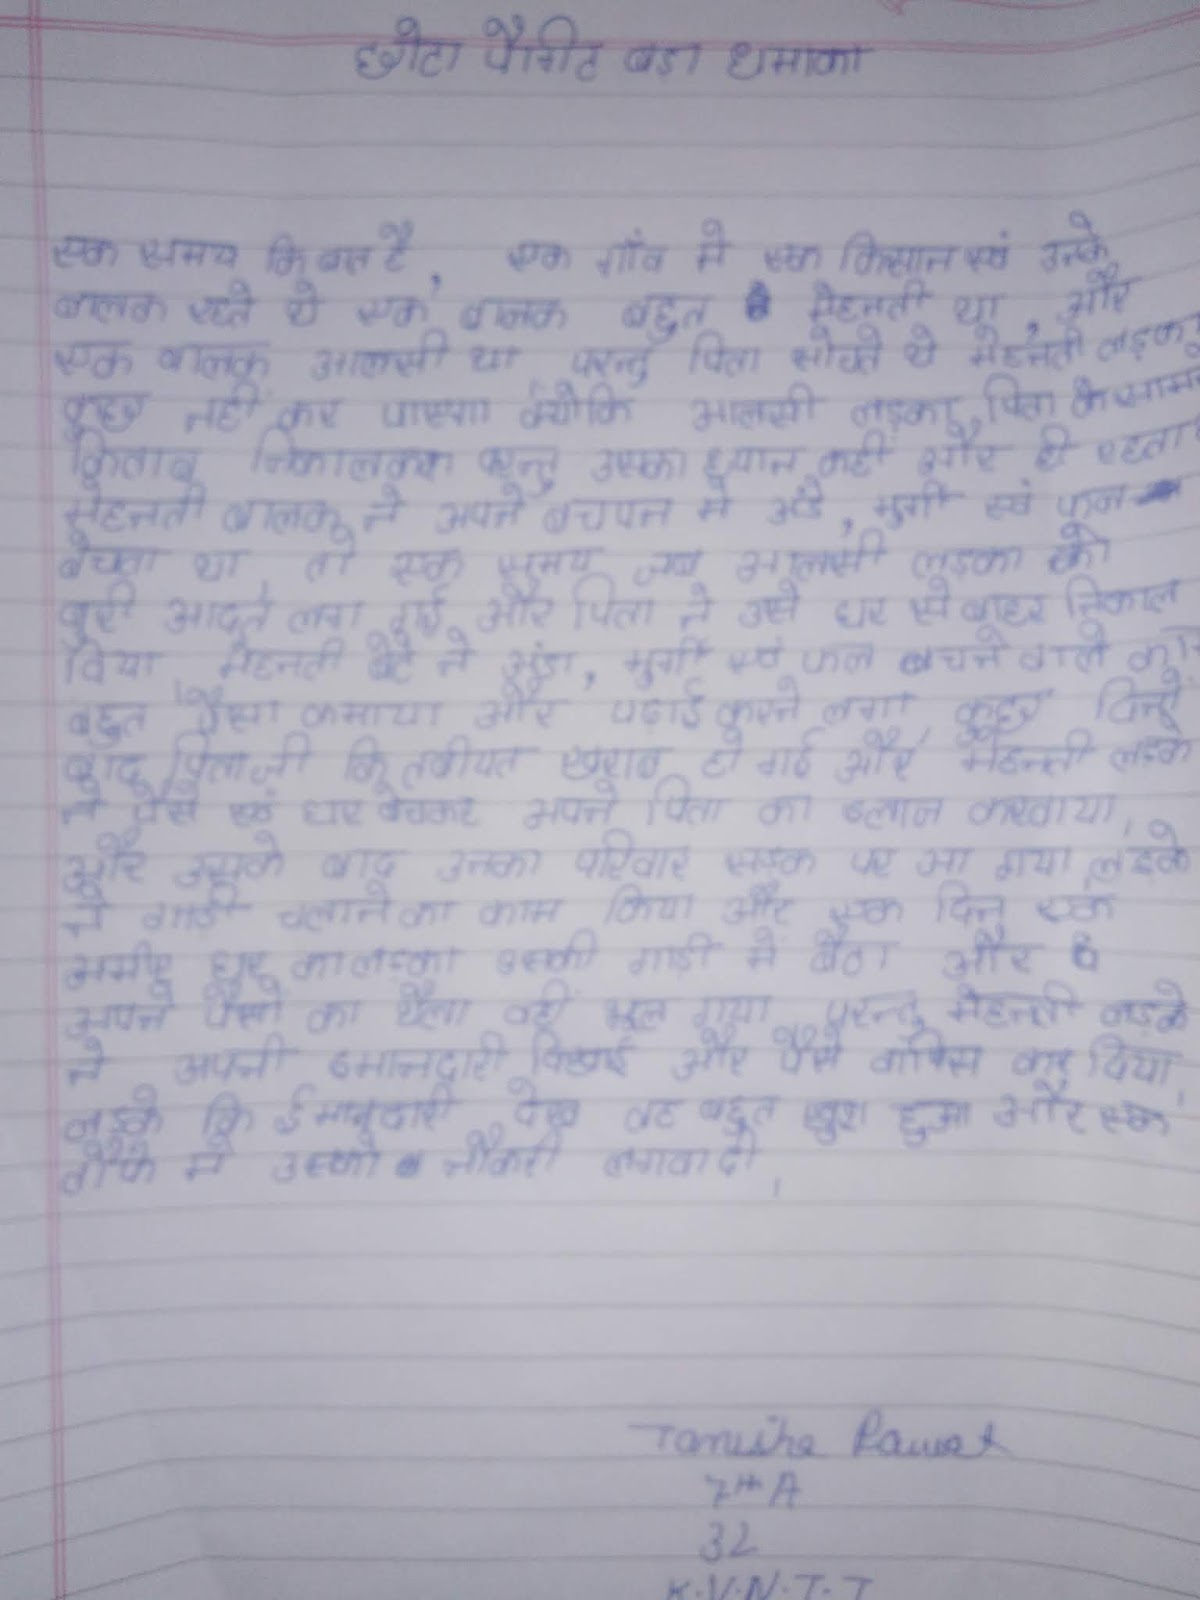 छोटा पैकेट बडा धमाका
एक समय कि बात है, एक गाँव मे एक किसान एवं उनके
बालक रहते थे एक बालक बहुत मेहनती था, और
एक बालक आलसी था परन्तु पिता सोचते थे मेहनती लड़का
कुछ नहीं कर पाएगा क्योकि आलसी लड़का, पिता के सामने
किताब निकालकर परन्तु उसका ध्यान कहीं और ही रहता
मेहनती बालक ने अपने बचपन मे अंडे, मुर्गी एवं फल
बेचता था, तो एक समय जब आलसी लड़का को
बुरी आदते लग गई और पिता ने उसे घर से बाहर निकाल
दिया मेहनती बेटे ने अंडा, मुर्गी एवं फल बेचने वाले
बहुत पैसा कमाया और पढाई करने लगा, कुछ दिनो
बाद पिता जी कि तबीयत खराब हो गई और मेहनती लडके
ने पैसे एवं घर बेचकर अपने पिता का इलाज करवाया,
और उसके बाद उनका परिवार सडक पर आ गया लडके
ने गाडी चलाने का काम किया और एक दिन एक
अमीर घर का लडका उसकी गाडी मे बैठा और
अपने पैसो का थैला वहीं भूल गया परन्तु मेहनती लडके
ने अपनी इमानदारी दिखाई और पैसे वापिस कर दिया,
लडके कि ईमानदारी देख वह बहुत खुश हुआ और एक
तोफे मे उसको नौकरी लगवादी,
Tanisha Rawat
7th A
32
K.V.N.T.T